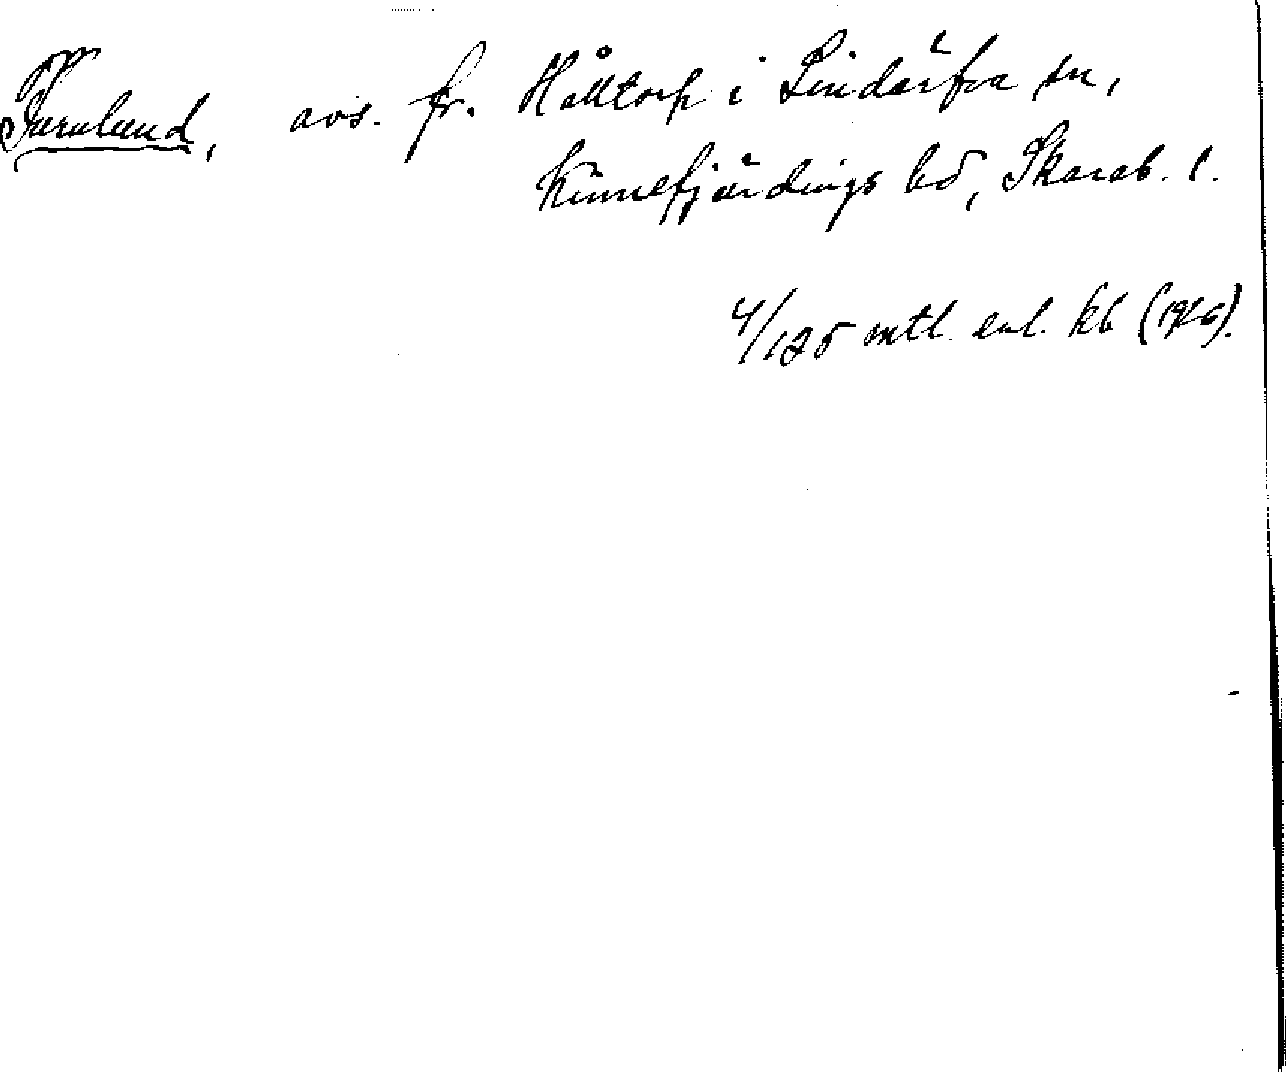 Furulund, avs. fr. Hålltorp i Lindärfva sn,
Kinnefjärdings hd, Skarab. l.
4/125 mtl. enl. kb